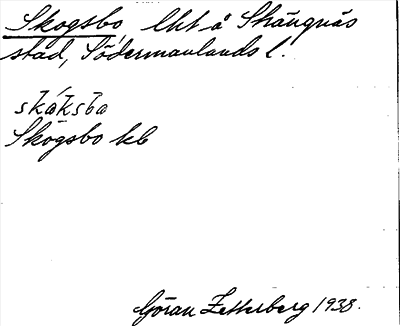 Skogsbo, lht å Strängnäs
stad, Södermanlands l.
skåksba
Skogsbo kb
Göran Zetterberg 1938.